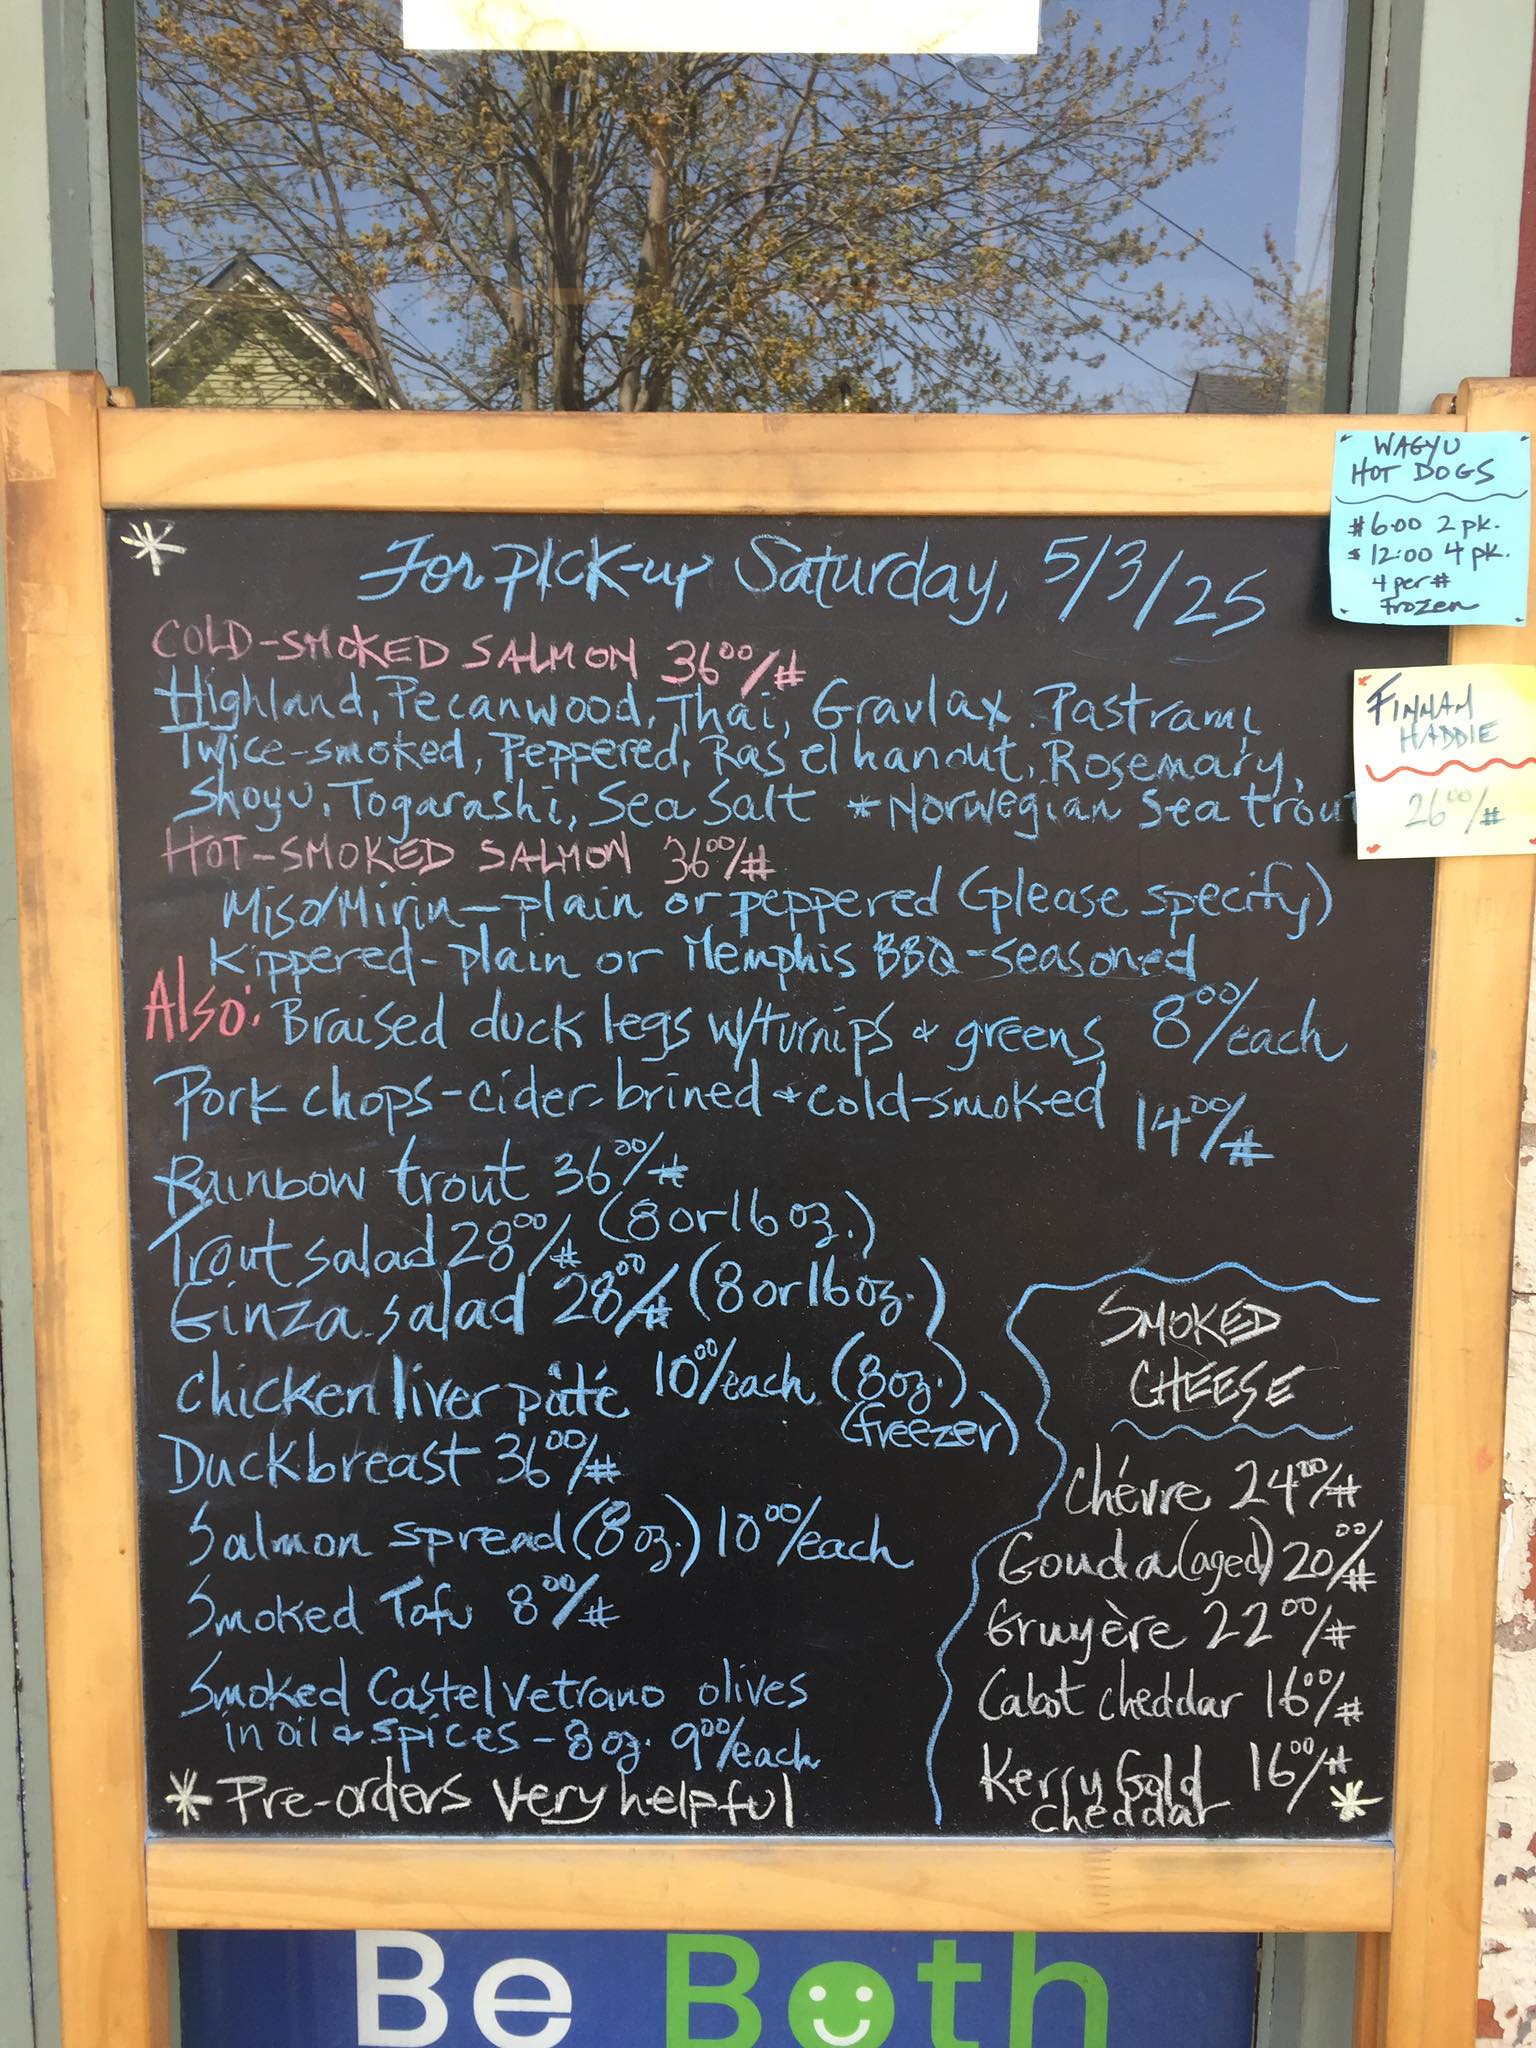 For pick-up Saturday, 5/3/25
COLD-SMOKED SALMON 36⁰⁰/#
Highland, Pecanwood, Thai, Gravlax, Pastrami,
Twice-smoked, Peppered, Ras el hanout, Rosemary,
Shoyu, Togarashi, Sea Salt *Norwegian Sea trout
HOT-SMOKED SALMON 36⁰⁰/#
Miso/Mirin—plain or peppered (please specify)
Kippered-plain or Memphis BBQ-seasoned
Also: Braised duck legs w/turnips & greens 8⁰⁰/each
Pork chops-cider-brined & cold-smoked 14⁰⁰/#
Rainbow trout 36⁰⁰/#
Trout salad 28⁰⁰/# (8 or 16 oz.)
Ginza salad 28⁰⁰/# (8 or 16 oz.)
chicken liver pâté 10⁰⁰/each (8 oz.)
(freezer)
Duck breast 36⁰⁰/#
Salmon spread (8 oz.) 10⁰⁰/each
Smoked Tofu 8⁰⁰/#
Smoked Castelvetrano olives
in oil & spices - 8 oz. 9⁰⁰/each
* Pre-orders very helpful
SMOKED
CHEESE
Chévre 24⁰⁰/#
Gouda (aged) 20⁰⁰/#
Gruyère 22⁰⁰/#
Cabot cheddar 16⁰⁰/#
Kerry Gold 16⁰⁰/#
cheddar
WAGYU
HOT DOGS
$6.00 2 pk.
$12.00 4 pk.
4 per #
Frozen
FINNAN
HADDIE
26⁰⁰/#
Be Both